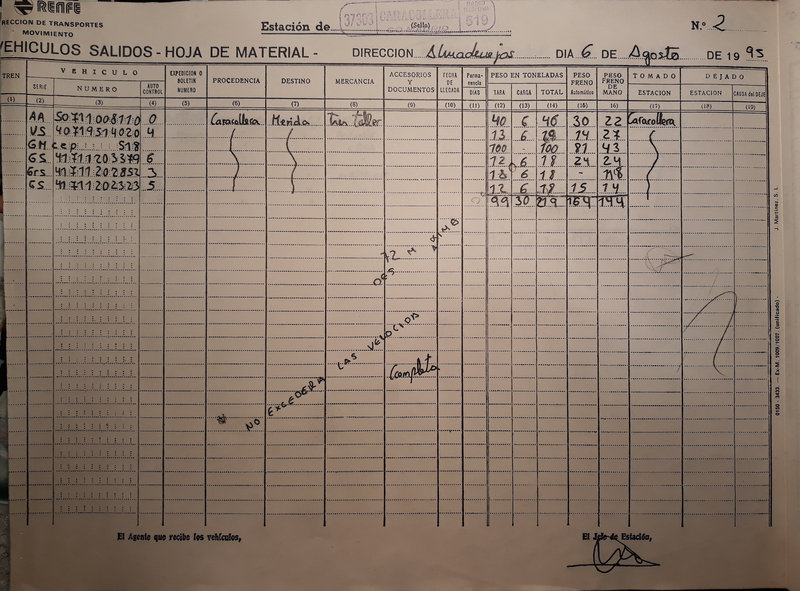 RENFE
RECCION DE TRANSPORTES
MOVIMIENTO
Estación de
37303 CARACOLLERA 519
(Sello)
N.º 2
VEHICULOS SALIDOS - HOJA DE MATERIAL - DIRECCION Almadenejos DIA 6 DE Agosto DE 1995
TREN VEHICULO EXPEDICION O BOLETIN NUMERO PROCEDENCIA DESTINO MERCANCIA ACCESORIOS Y DOCUMENTOS FECHA DE LLEGADA Permanencia DIAS PESO EN TONELADAS PESO FRENO Automático PESO FRENO DE MANO TOMADO DEJADO
SERIE NUMERO AUTO CONTROL TARA CARGA TOTAL ESTACION ESTACION CAUSA del DEJE
(1) (2) (3) (4) (5) (6) (7) (8) (9) (10) (11) (12) (13) (14) (15) 16) (17) (18) (19)
AA 50711008110 0 Caracollera Merida Tren taller 40 6 46 30 22 Caracollera
US 40719514020 4 13 6 19 14 27
GM c.e.p. 518 100 - 100 81 43
GS 41711203379 6 12 6 18 24 24
Grs 41711202852 3 6 18 -
GS 41711202323 5 12 6 18 15 14
99 30 219 164 144
NO EXCEDERA LAS VELOCIDA
DES 72 M
Completo
El Agente que recibe los vehículos,
El Jefe de Estación,
J. Martínez, S. L.
0150 - 3433. — Ex-M. 1009/1027. (unificado)